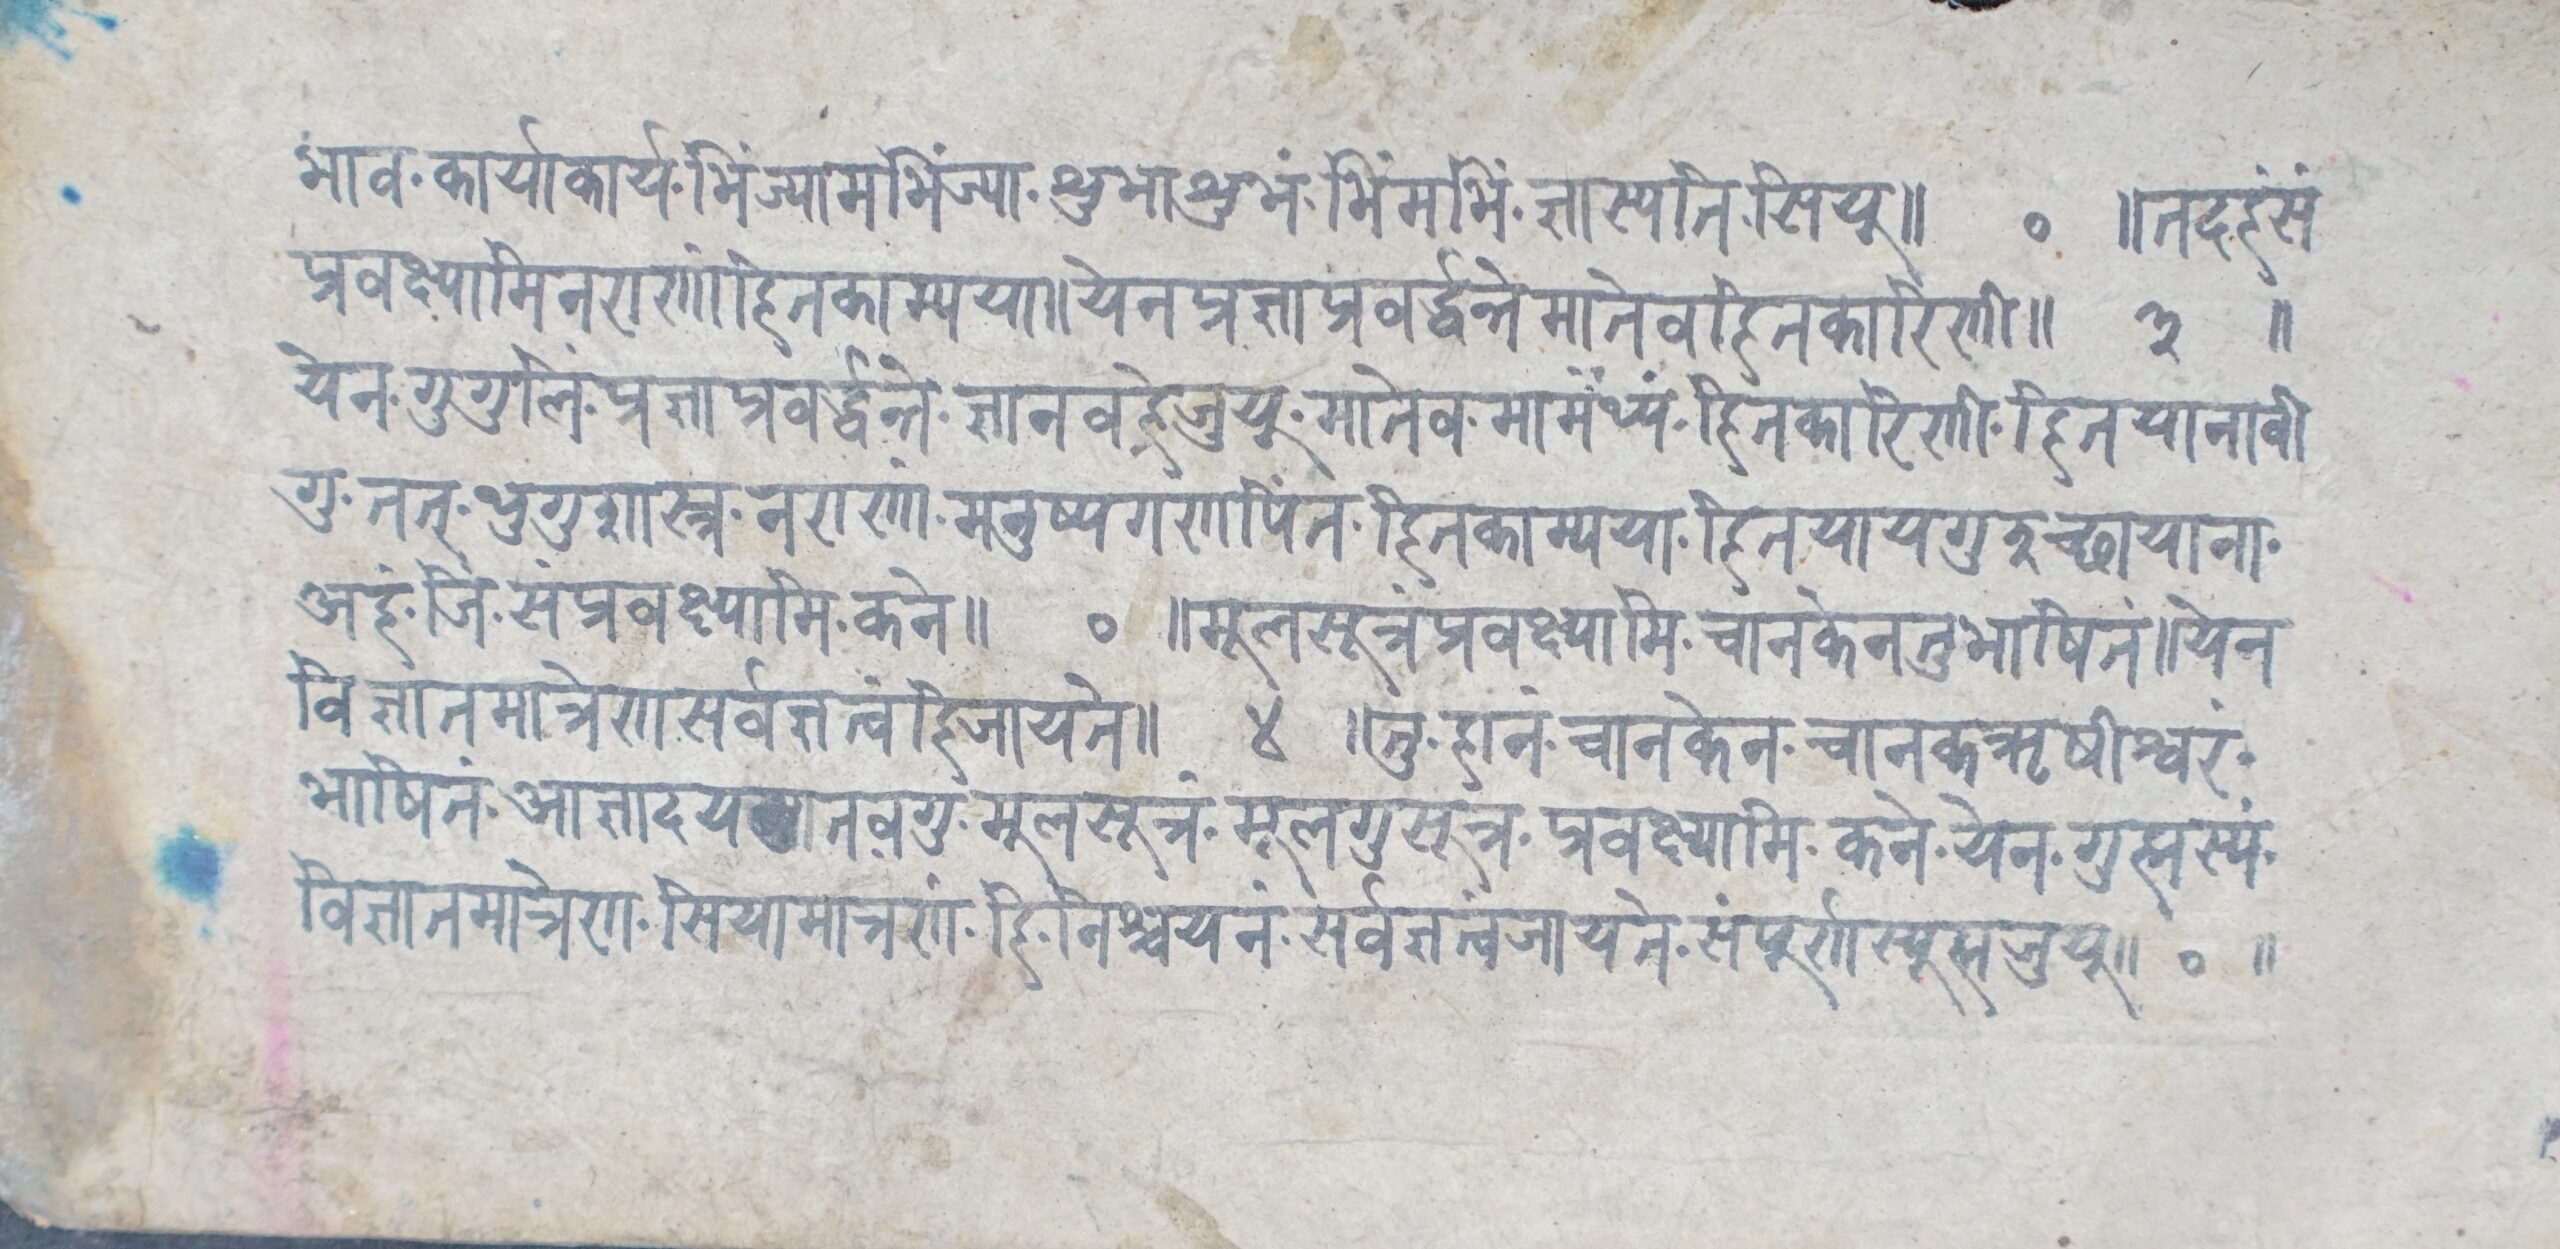 भाव· कार्याकार्य· भिंज्यामभिंज्या· थुभाथुभं· भिंमभिं· ज्ञास्यति· सियू॥ ० ॥तदहंसं
प्रवक्ष्यामिनराणांहितकाम्यया॥येनप्रज्ञाप्रवर्द्धन्तेमातेवहितकारिणी॥ ३ ॥
येन· गुगुलिं· प्रज्ञाप्रवर्द्धन्ते· ज्ञानवहेजुयू· मातेव· मामंथ्यं· हितकारिणी· हितयानावी
गु· तत्· थुगुशास्त्र· नराणां· मनुष्यगणपिंत· हितकाम्यया· हितयायगुइच्छायाना·
अहं· जिं· संप्रवक्ष्यामि· कने॥ ० ॥मूलसूत्रंप्रवक्ष्यामि· चानकेनतुभाषितं॥येन
विज्ञानमात्रेणसर्वज्ञत्वंहिजायते॥ ४ ॥तु· हानं· चानकेन· चानकऋषीश्वरं·
भाषितं· आज्ञादयकातवगु· मूलसूत्रं· मूलगुसूत्र· प्रवक्ष्यामि· कने· येन· गुह्मस्यं·
विज्ञानमात्रेण· सियामात्रणं· हि· निश्चयनं· सर्वज्ञत्वंजायते· संपूर्णस्यूह्मजुयू॥ ० ॥